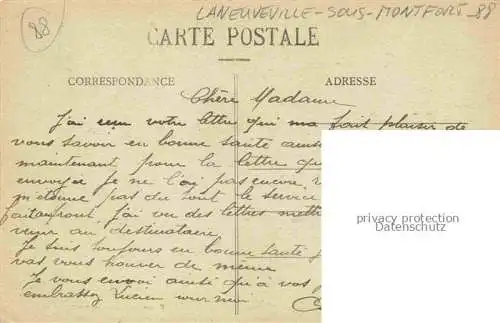 88
LANEUVEVILLE-SOUS-MONTFORT_88
CARTE POSTALE
CORRESPONDANCE
ADRESSE
Chère Madame
J'ai eu votre lettre qui ma fait plaisir de
vous savoir en bonne santé ainsi
maintenant pour la lettre que
envoyée je ne l'ai pas encore
m'étonne pas du tout le service
j'ai vu des lettres mettre
venir au destinataire
Je suis toujours en bonne santé
vas vous trouver de même
Je vous envoi ainsi qu'à vos
embrassez Lucien pour moi
privacy protection
Datenschutz